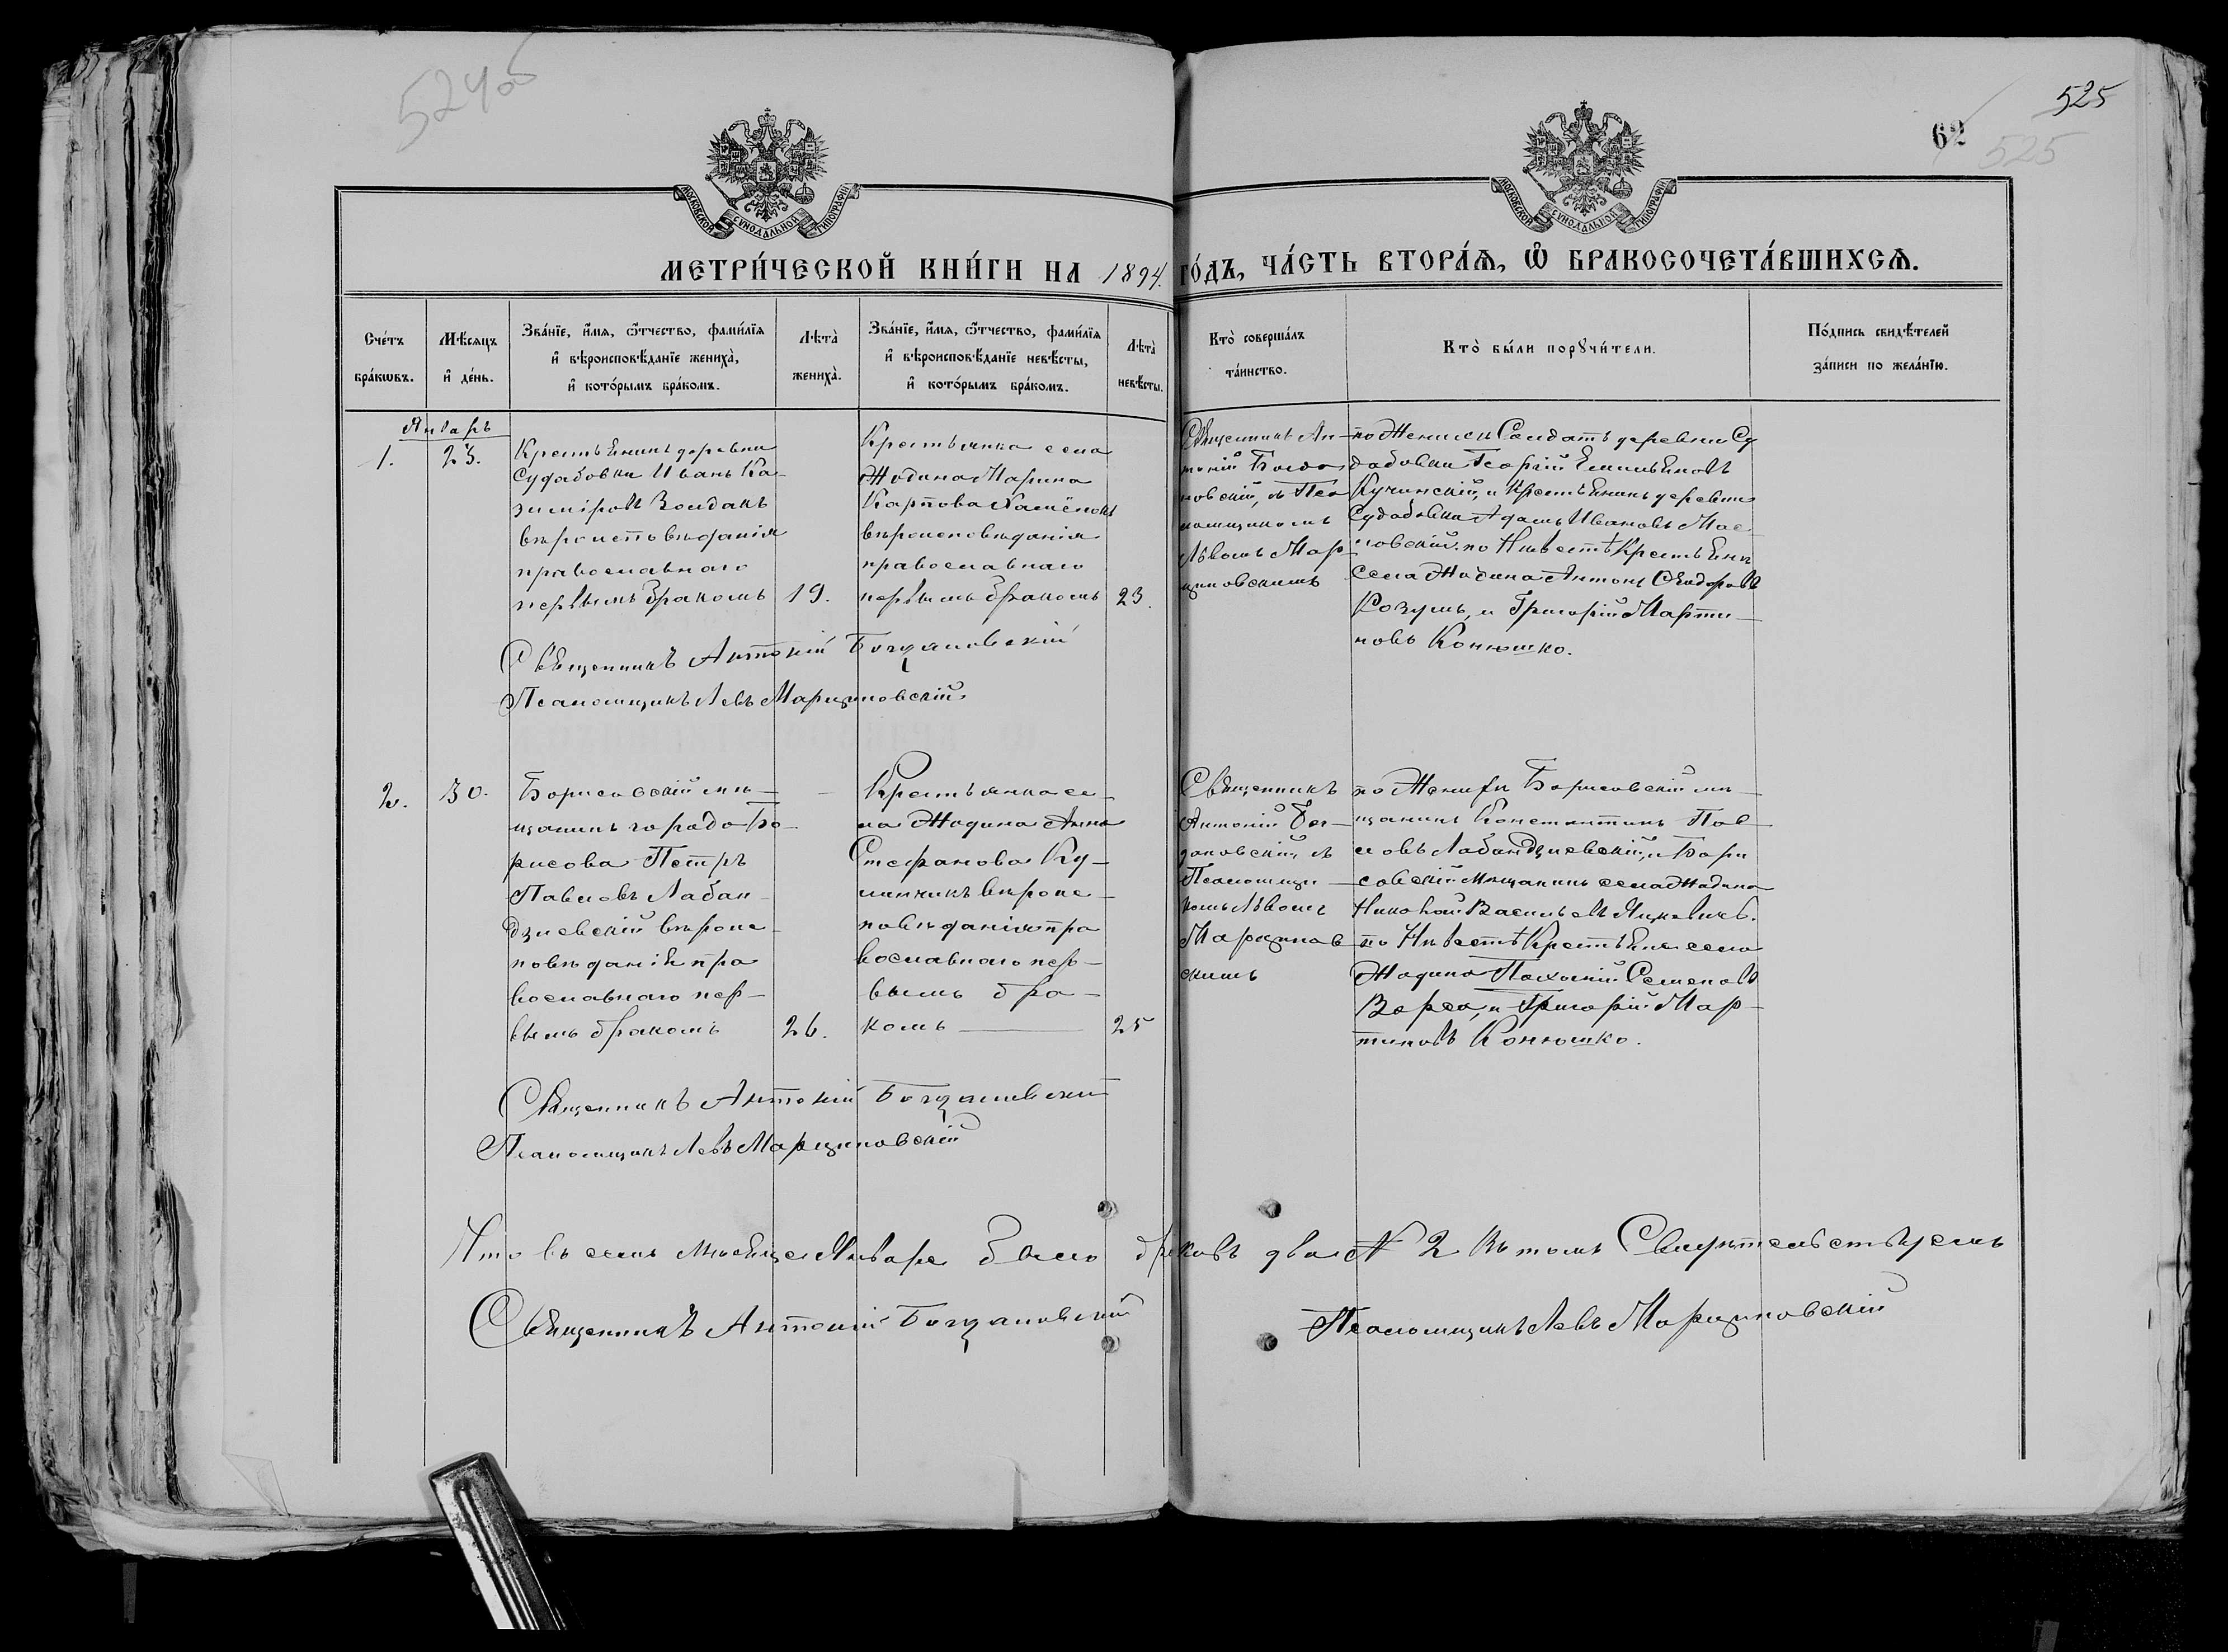 524об
525
62
525
МОСКОВСКОЙ СѴНОДАЛЬНОЙ ТИПОГРАФІИ
МОСКОВСКОЙ СѴНОДАЛЬНОЙ ТИПОГРАФІИ
МЕТРИ́ЧЕСКОЙ КНИ́ГИ НА 1894. ГО́ДЪ, ЧА́СТЬ ВТОРА́Я, Ѡ҆ БРАКОСОЧЕТА́ВШИХСЯ.
Сче́тъ
бра́кѡвъ.
Мѣ́сяцъ
и҆ де́нь.
Зва́нїе, и҆́мя, ѻ҆́тчество, фами́лїя
и҆ вѣроисповѣ́данїе жениха̀,
и҆ кото́рымъ бра́комъ.
Лѣта̀
жениха̀.
Зва́нїе, и҆́мя, ѻ҆́тчество, фами́лїя
и҆ вѣроисповѣ́данїе невѣ́сты,
и҆ кото́рымъ бра́комъ.
Лѣта̀
невѣ́сты.
Кто̀ соверша́лъ
та́инство.
Кто̀ бы́ли порꙋчи́тели.
По́дпись свидѣ́телей
за́писи по жела́нїю.
Январь
1.
23.
Крестьянинъ деревни
Судобовки Иванъ Ка-
зиміровъ Вондакъ
вѣроисповѣданія
православнаго
первымъ бракомъ
19.
Крестьянка села
Жодина Марина
Карпова
вѣроисповѣданія
православнаго
первымъ бракомъ
23.
Священникъ Ан-
тоній Богда
новскій, съ Пса
ломщикомъ
Львомъ Мар-
циновскимъ
по Женихѣ Солдатъ деревни Су
добовки Георгій Емильяновъ
Кучинскій, и Крестьянинъ деревни
Судобовки Адамъ Ивановъ Мас
ловскій. по Невѣстѣ Крестьяни
села Жодина Антонъ Ѳеодоровъ
Козумъ, и Григорій Марти-
новъ Конюшко.
Священникъ Антоній Богдановскій
Псаломщикъ Левъ Марциновскій
2.
30.
Борисовскій мѣ-
щанинъ города Бо-
рисова Петръ
Павловъ Лабан-
дзіевскій вѣроис-
повѣданія пра
вославнаго пер-
вымъ бракомъ
26.
Крестьянка се-
ла Жодина Анна
Стефанова Ку-
линчикъ вѣроис-
повѣданія пра
вославнаго пер-
вымъ бра-
комъ
25
Священникъ
Антоній Бог-
дановскій, съ
Псаломщи-
комъ Львомъ
Марцинов
скимъ
по Женихѣ Борисовскій мѣ-
щанинъ Константинъ Пав-
ловъ Лабандзіевскій, и Бори
совскій Мѣщанинъ села Жодина
Николай Васильевъ Яцкевичъ.
по Невѣстѣ Крестьяне села
Жодина Пахомій Семеновъ
Ворса, и Григорій Мар-
тиновъ Конюшко.
Священникъ Антоній Богдановскій
Псаломщикъ Левъ Марциновскій
Что въ семъ мѣсяце Январе было браковъ два № 2 въ томъ Свидѣтельствуемъ
Священникъ Антоній Богдановскій
Псаломщикъ Левъ Марциновскій